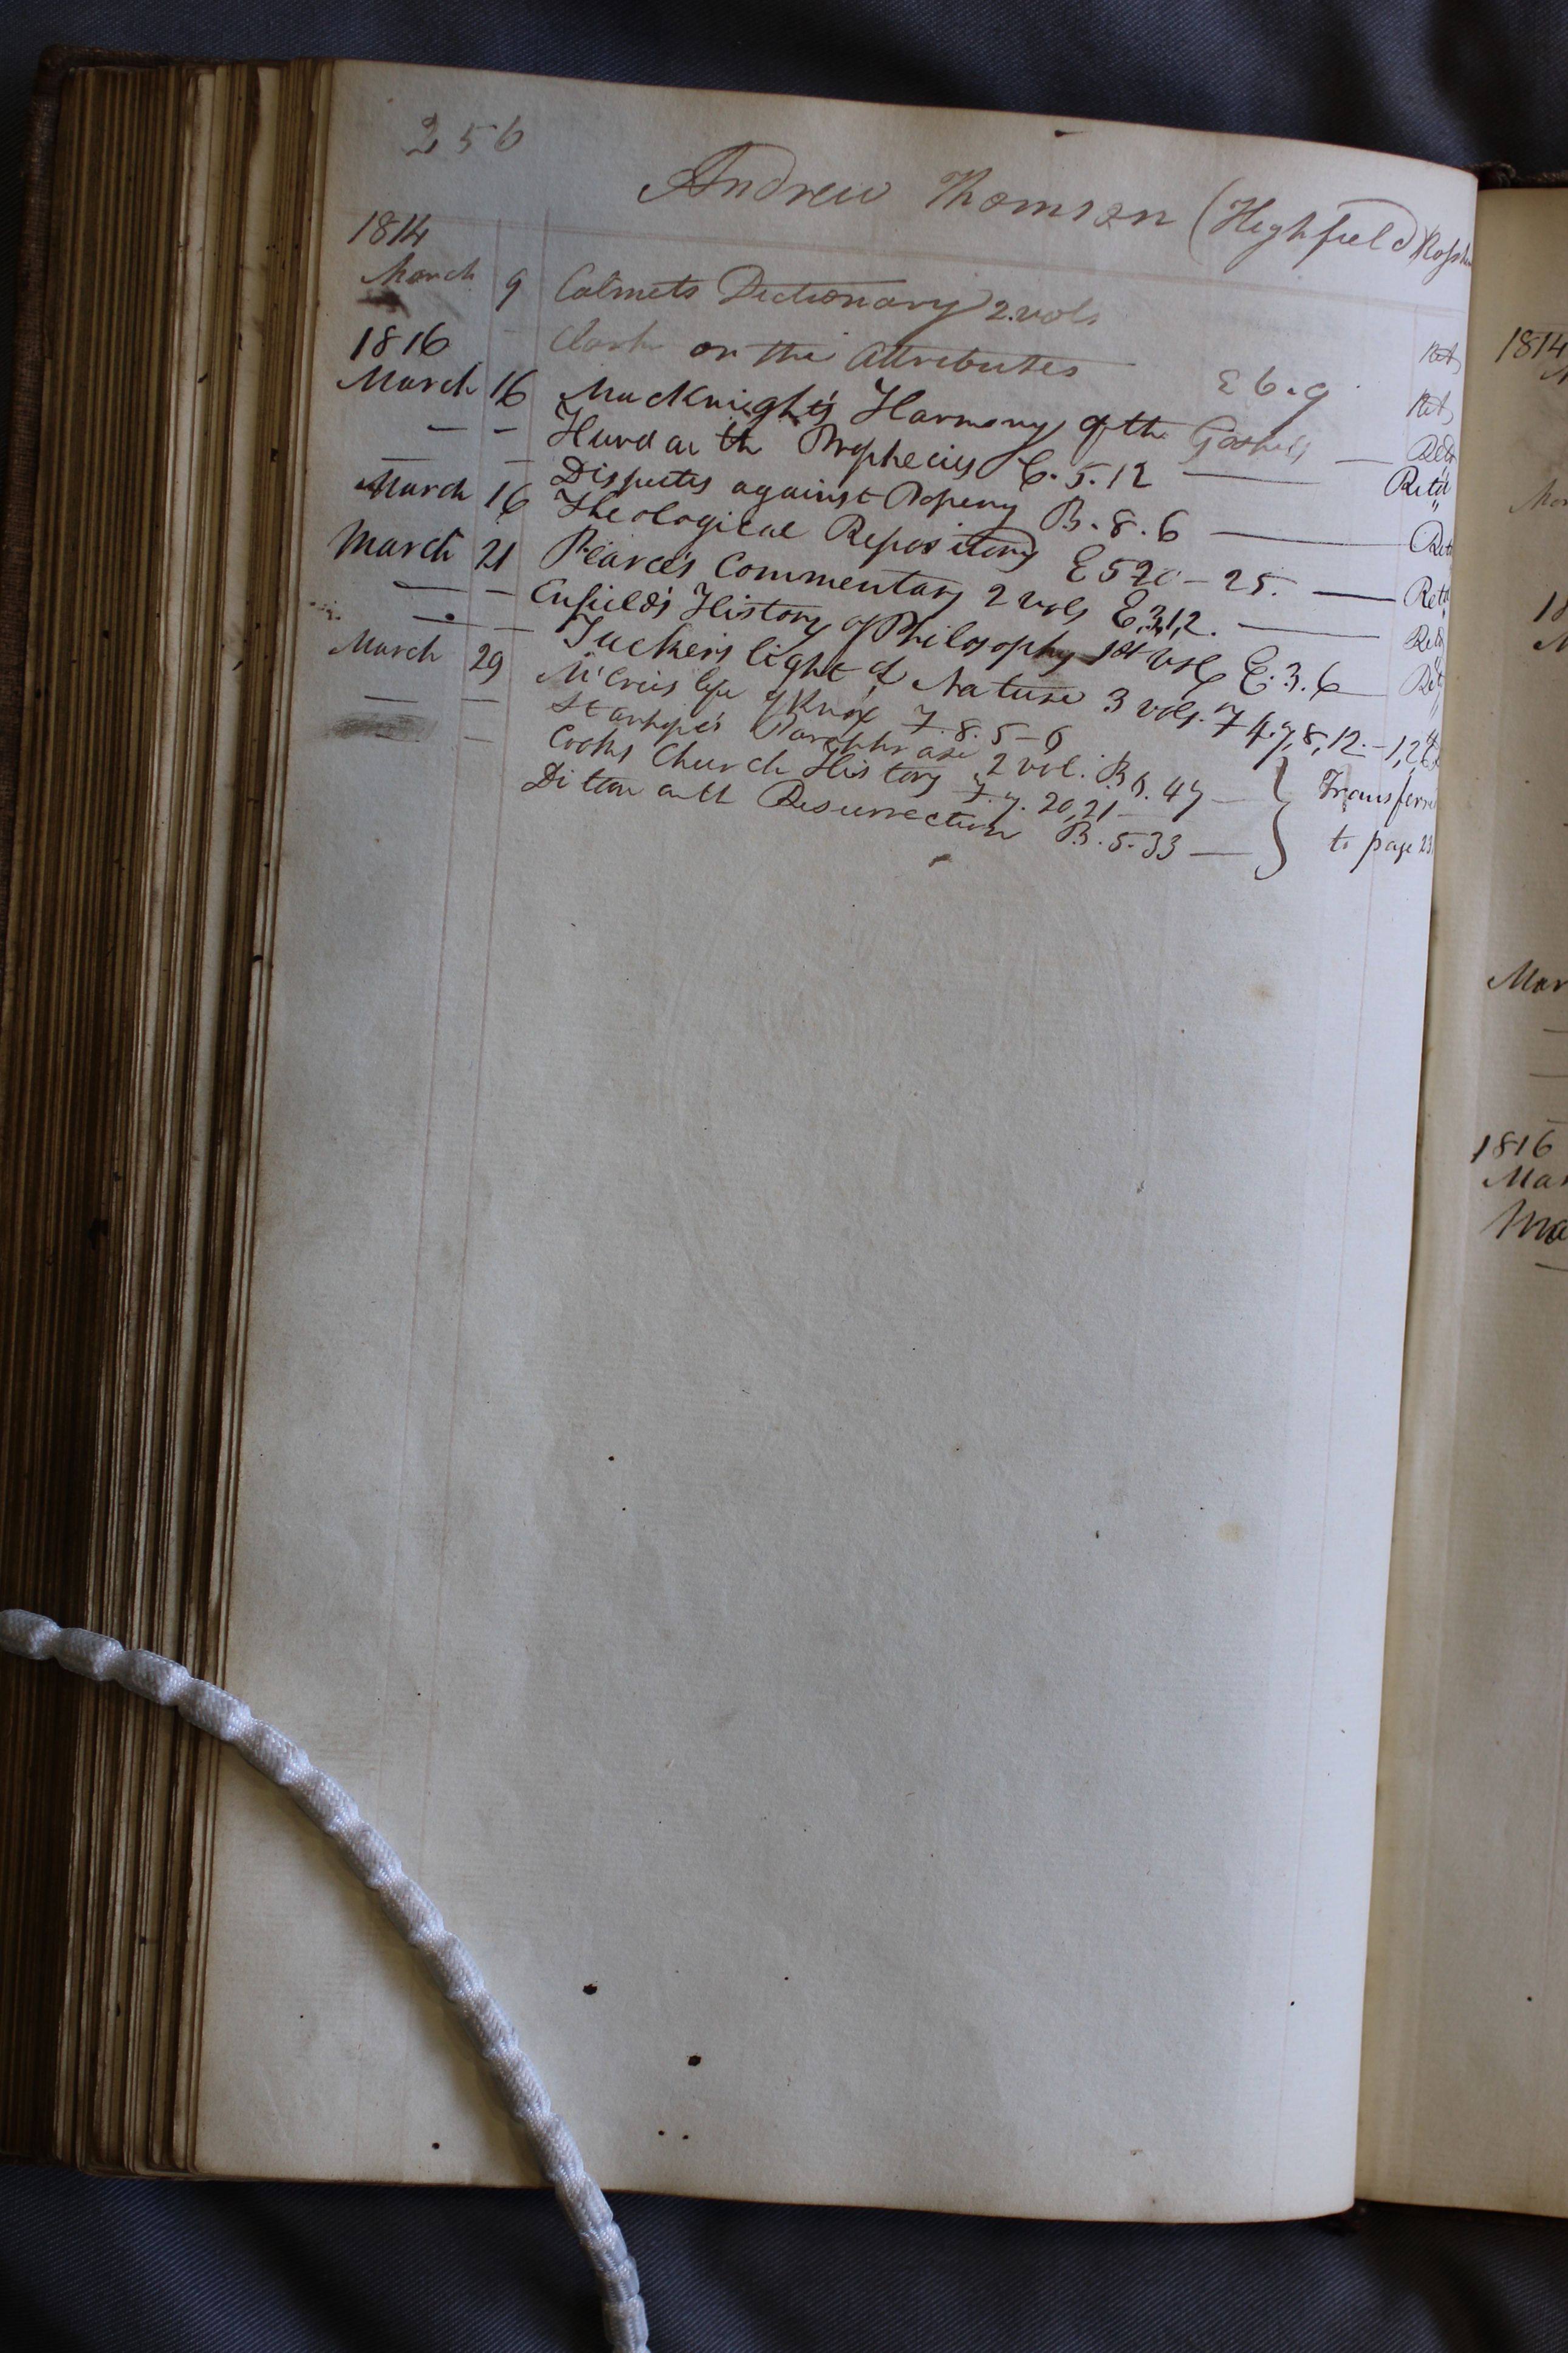 256
Andrew Thomson (Highfield)
1814
March 9 Calmets Dictionary 2 vols Ret
Clark on the Attributes E 6.9 Ret
1816
March 16 Macknight's Harmony of the Gospels — Retd
— — Hurd on the Prophecies C.5.12 — Retd
— — Disputes against Popery B.8.6 — Retd
March 16 Theological Repository E 5 20-25. — Retd
March 21 Pearce's Commentary 2 vols E,3,1,2. — Retd
— — Enfield's History of Philosophy 1st Vol E.3.6 — Retd
— — Tucker's light of Nature 3 vols. 7 4.7,8,12.-1,2
March 29 McCries life of Knox 7.8.5-6
— — Stanhope's Paraphrase 2 vol. B 6.47 —
— Cooks Church History 7.7.20,21 — } Transferr
Ditton on th Resurrection B.5.33 — to page
1814
1816
Mar